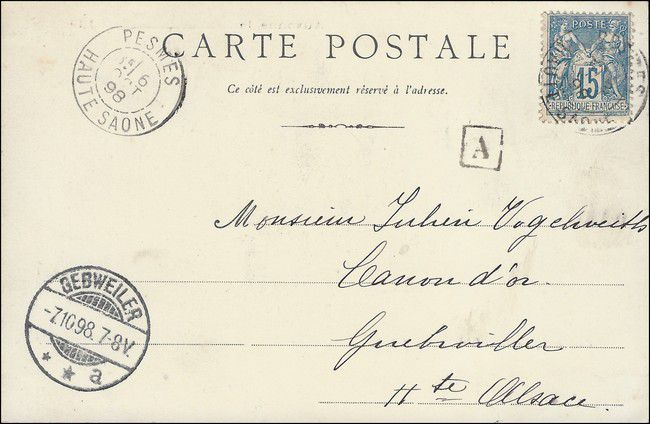 PESMES
6
OCT
98
HAUTE SAONE
CARTE POSTALE
Ce côté est exclusivement réservé à l'adresse.
POSTE
15
REPUBLIQUE FRANÇAISE
A
Monsieur Julien
Canon d'or.
Guebwiller
Hte Alsace.
GEBWEILER
-7.10.98. 7-8V.
* * a